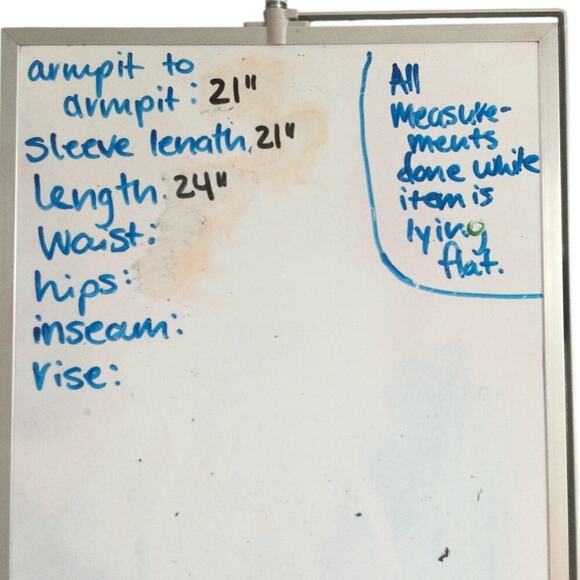 armpit to
armpit: 21"
sleeve length, 21"
Length: 24"
Waist:
hips:
inseam:
rise:
All
Measure-
ments
done while
item is
lying
flat.